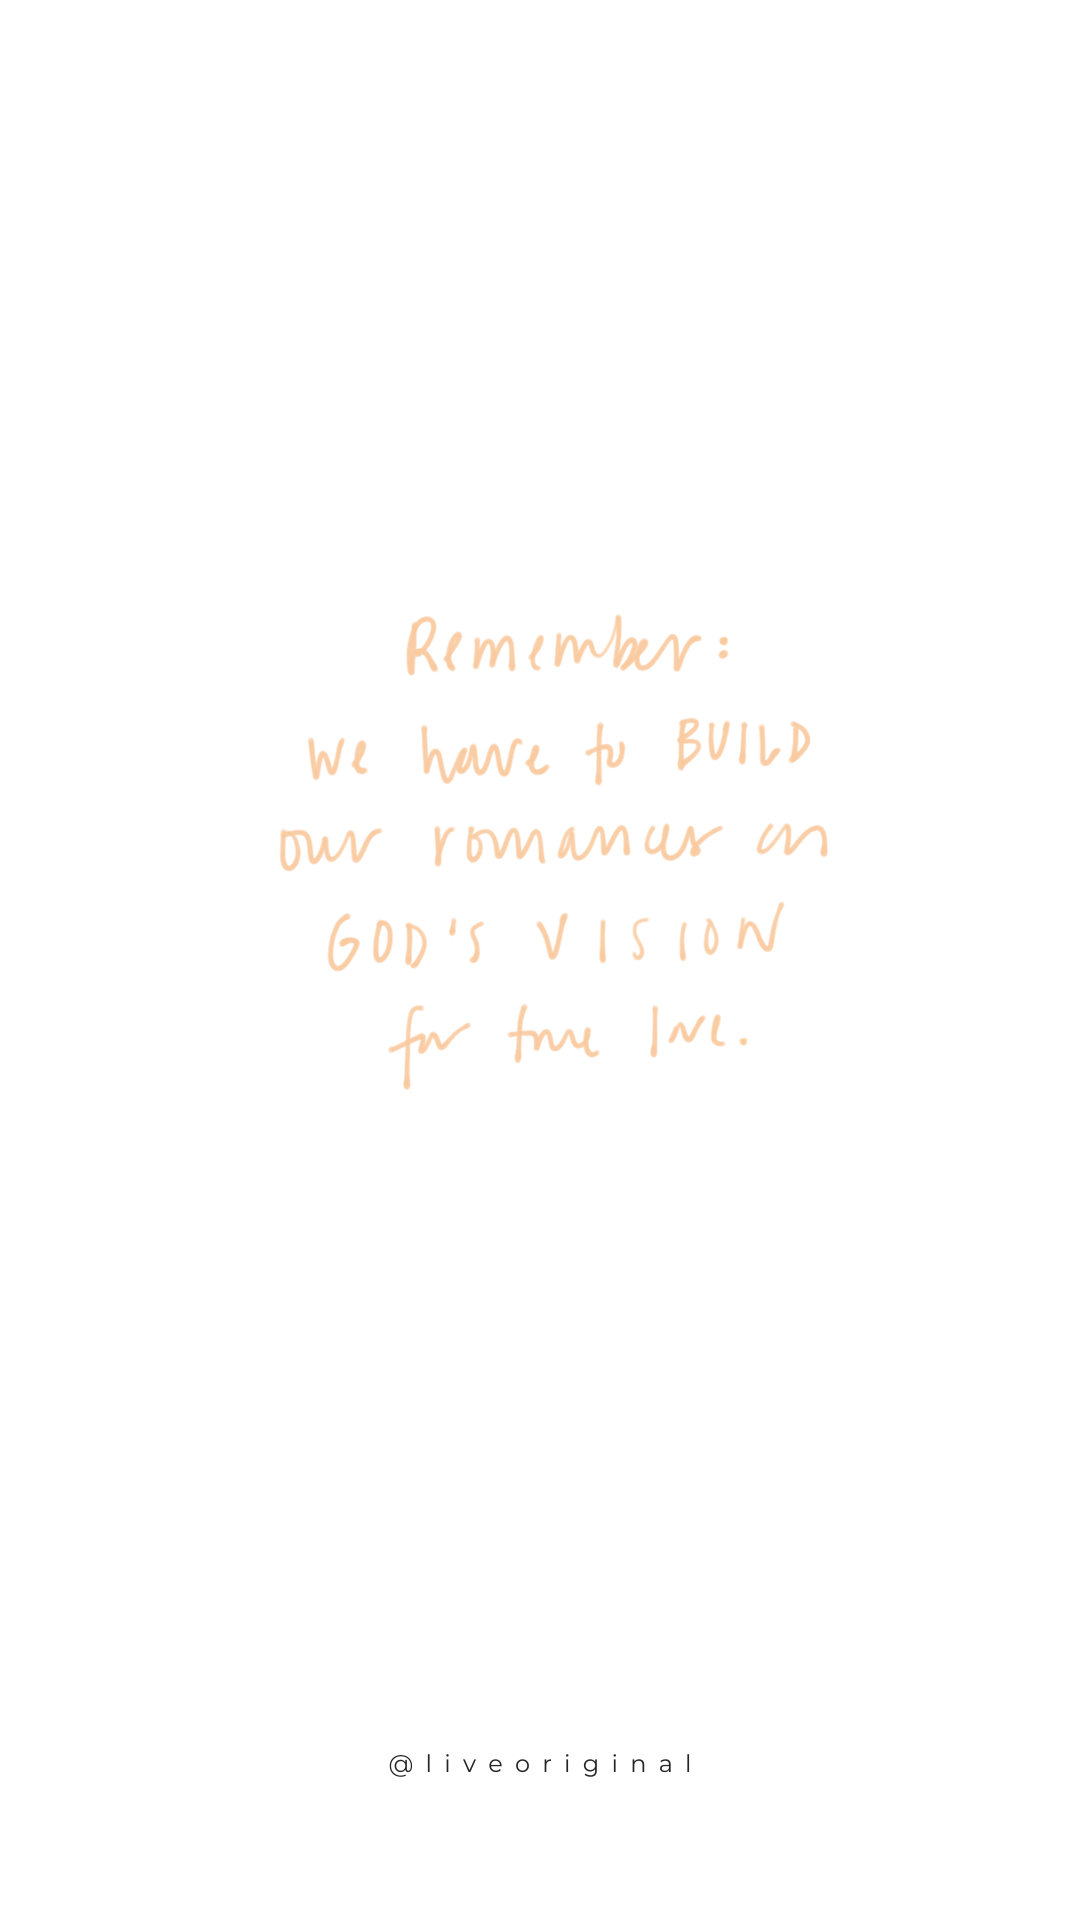 Remember:
we have to BUILD
our romances on
GOD'S VISION
for true love.
@liveoriginal